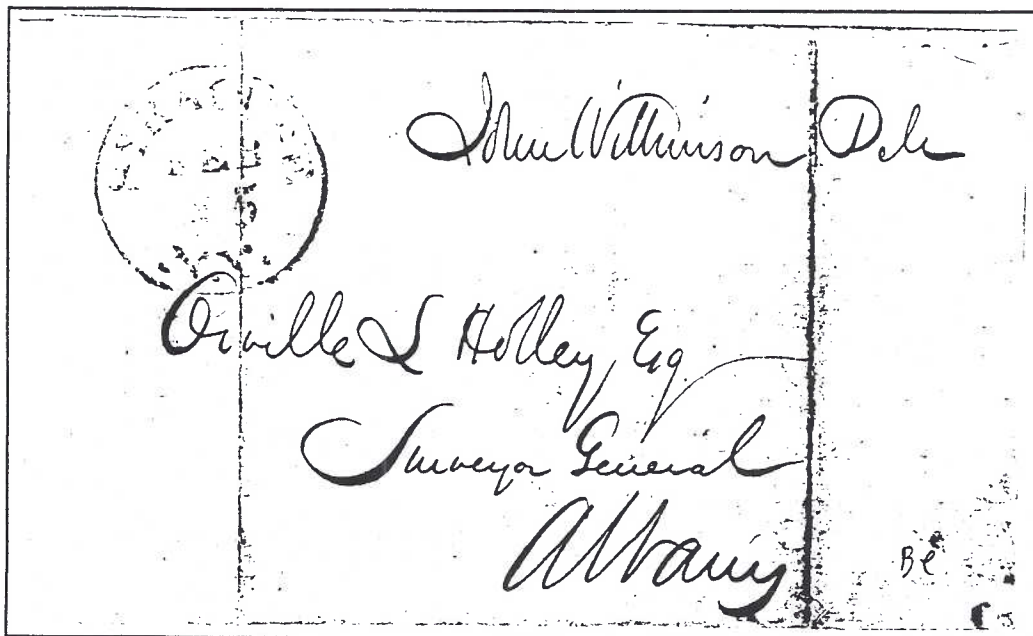 SYRACUSE
John Wilkinson
Orville L Holley, Esq.
Surveyor General
Albany
Be